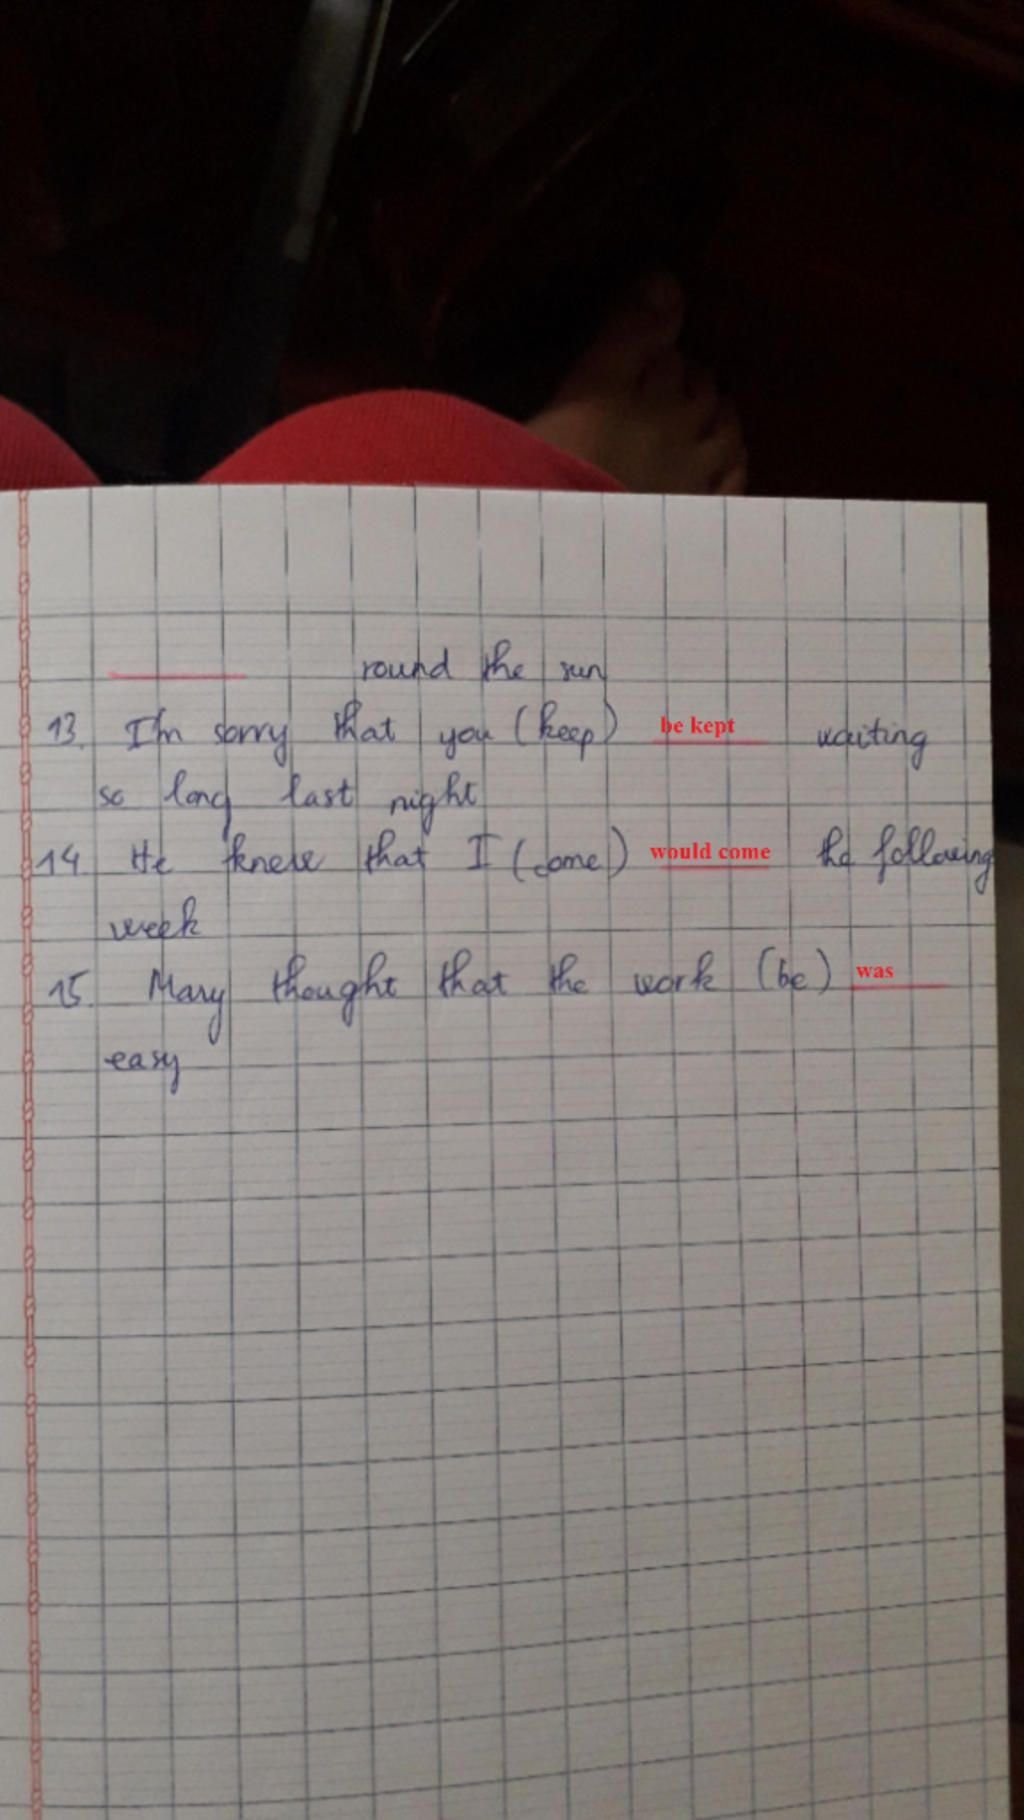 round the sun
13. I'm sorry that you (keep) be kept waiting
so long last night
14. He knew that I (come) would come the following
week
15. Mary thought that the work (be) was
easy